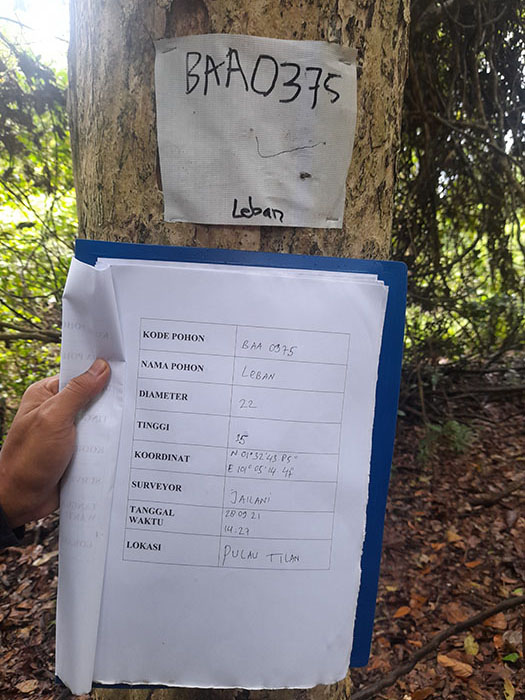 BAA0375
Leban
KODE POHON BAA 0375
NAMA POHON LEBAN
DIAMETER 22
TINGGI 15
KOORDINAT N 01°32'43
E 101°05'14
SURVEYOR JAILANI
TANGGAL 28 09 21
WAKTU 14:27
LOKASI PULAU TILAN